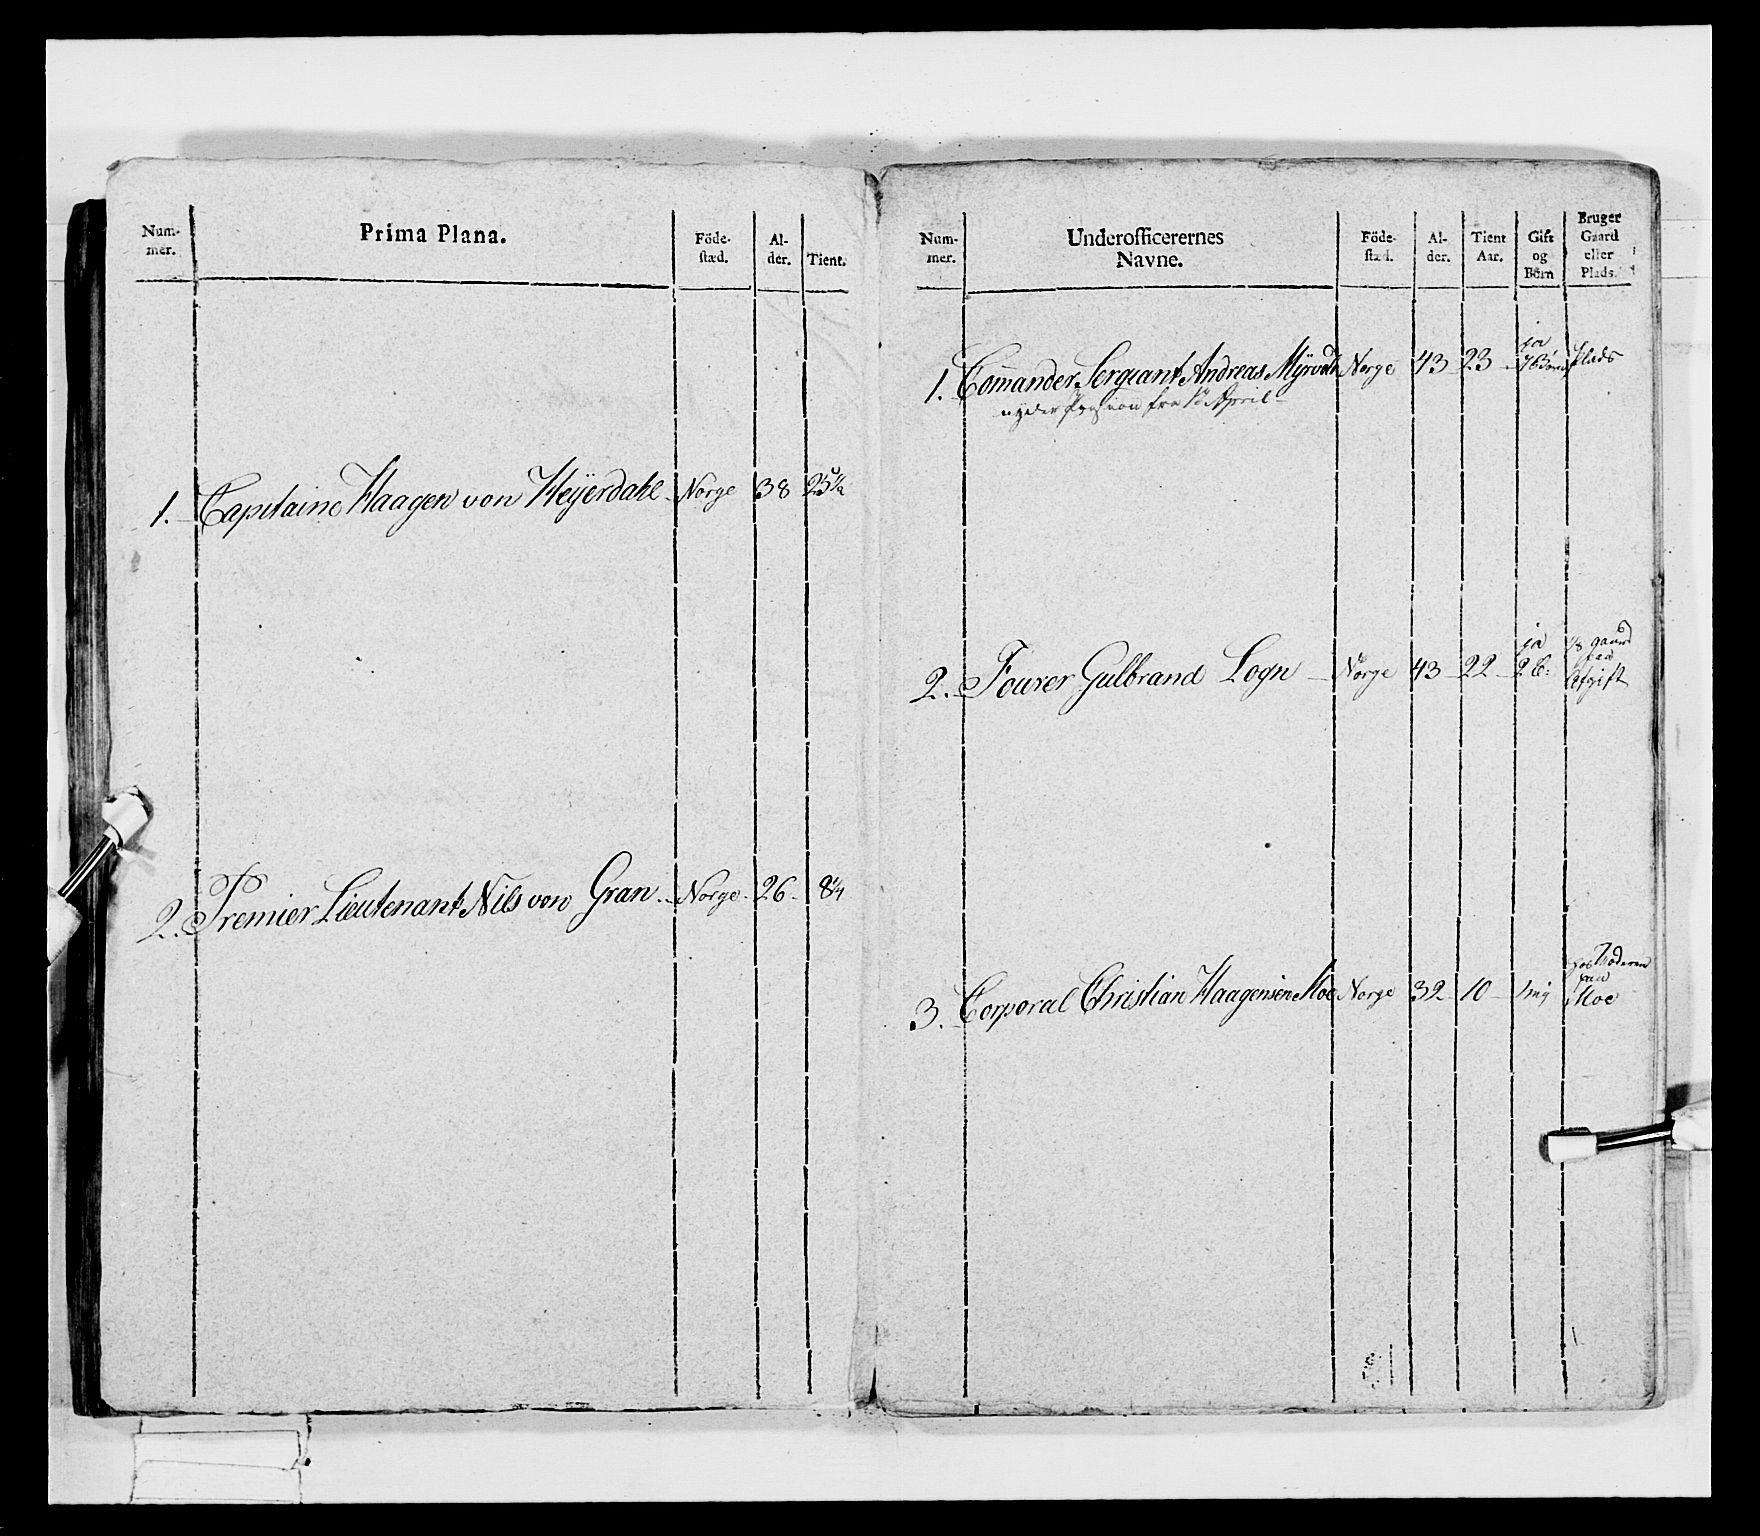 Num-
mer.
Prima Plana.
Föde-
stæd.
Al-
der.
Tient.
1. Capitaine Haagen von Heyerdahl Norge 38 25½
2. Premier Lieutenant Nils von Gran Norge 26 8¼
Num-
mer.
Underofficerernes
Navne.
Föde-
stæd.
Al-
der.
Tient
Aar.
Gift
og
Börn
Bruger
Gaard
eller
Plads.
ja
1. Comander Sergeant Andreas Myrvold Norge 43 23 Plads
nyder Pension fra April
ja gaard
paa
2. Fourer Gulbrand Logn Norge 43 22 2 B:
Afgift
hos Moderen
paa
3. Corporal Christian Haagensen Moe Norge 32 10 Moe